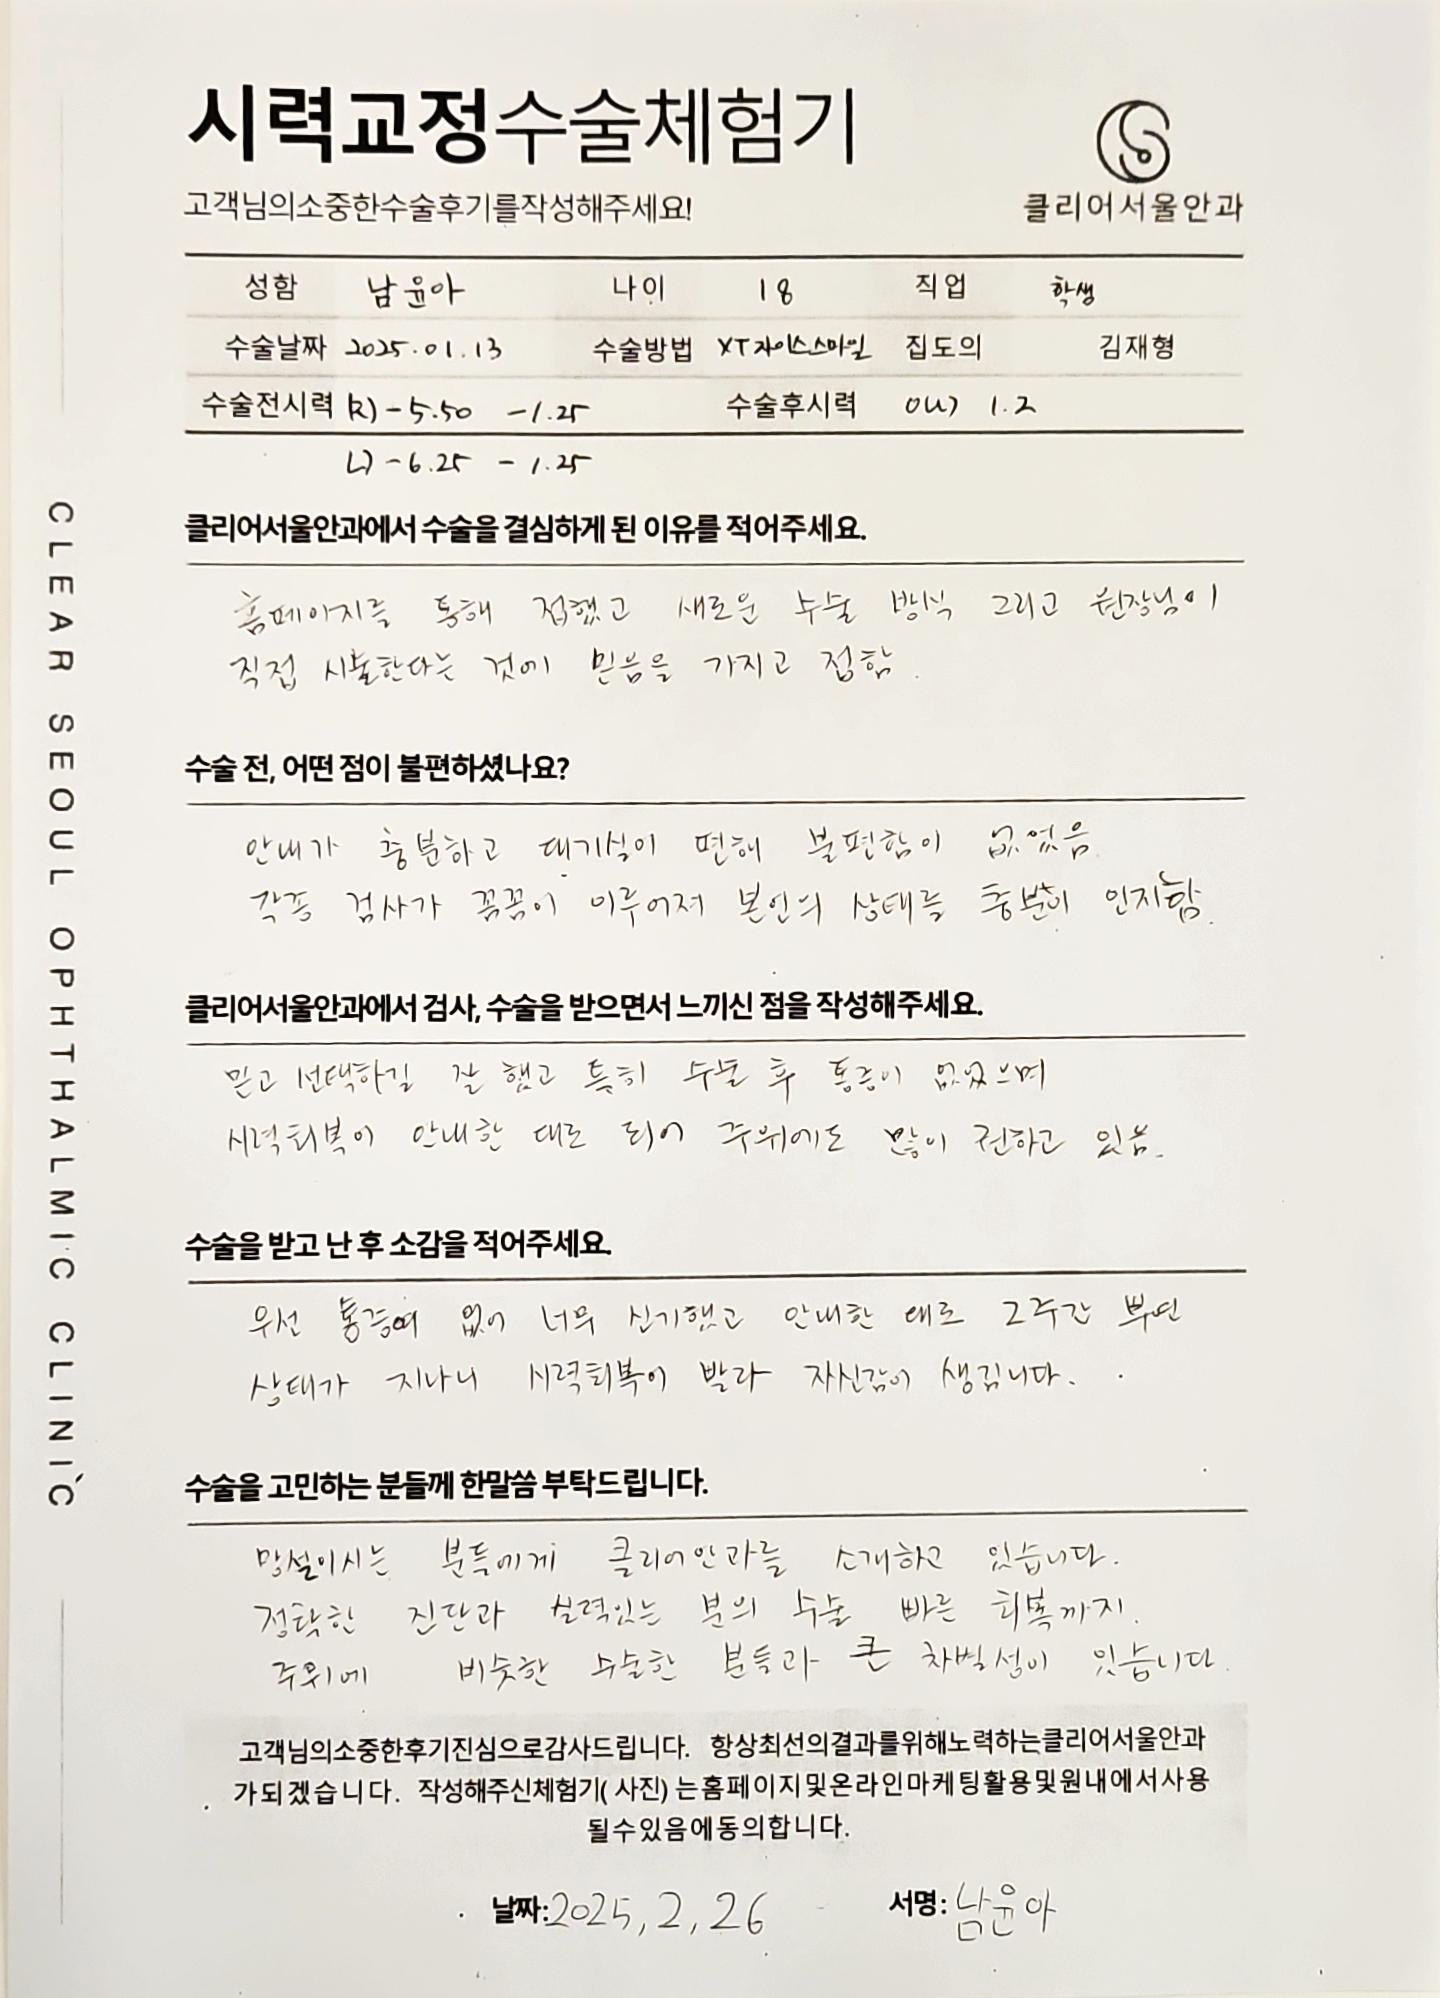 시력교정수술체험기
고객님의소중한수술후기를작성해주세요!
클리어서울안과
성함 남윤아 나이 18 직업 학생
수술날짜 2025.01.13 수술방법 XT자이스스마일 집도의 김재형
수술전시력 R) -5.50 -1.25 수술후시력 OU) 1.2
L) -6.25 -1.25
CLEAR SEOUL OPHTHALMIC CLINIC
클리어서울안과에서 수술을 결심하게 된 이유를 적어주세요.
홈페이지를 통해 접했고 새로운 수술 방식 그리고 원장님이
직접 시술한다는 것에 믿음을 가지고 접함.
수술 전, 어떤 점이 불편하셨나요?
안내가 충분하고 대기실이 편해 불편함이 없었음.
각종 검사가 꼼꼼이 이루어져 본인의 상태를 충분히 인지함.
클리어서울안과에서 검사, 수술을 받으면서 느끼신 점을 작성해주세요.
믿고 선택하길 잘 했고 특히 수술 후 통증이 없었으며
시력회복이 안내한 대로 되어 주위에도 많이 전하고 있음.
수술을 받고 난 후 소감을 적어주세요.
우선 없어 너무 신기했고 안내한 대로 2주간
상태가 지나니 시력회복이 빨라 자신감이 생깁니다.
수술을 고민하는 분들께 한말씀 부탁드립니다.
망설이시는 분들에게 클리어안과를 소개하고 있습니다.
정확한 진단과 실력있는 분의 수술 빠른 회복까지.
주위에 비슷한 수술한 분들과 큰 차별성이 있습니다.
고객님의소중한후기진심으로감사드립니다. 항상최선의결과를위해노력하는클리어서울안과
가되겠습니다. 작성해주신체험기( 사진) 는홈페이지및온라인마케팅활용및원내에서사용
될수있음에동의합니다.
날짜:2025, 2, 26 서명: 남윤아